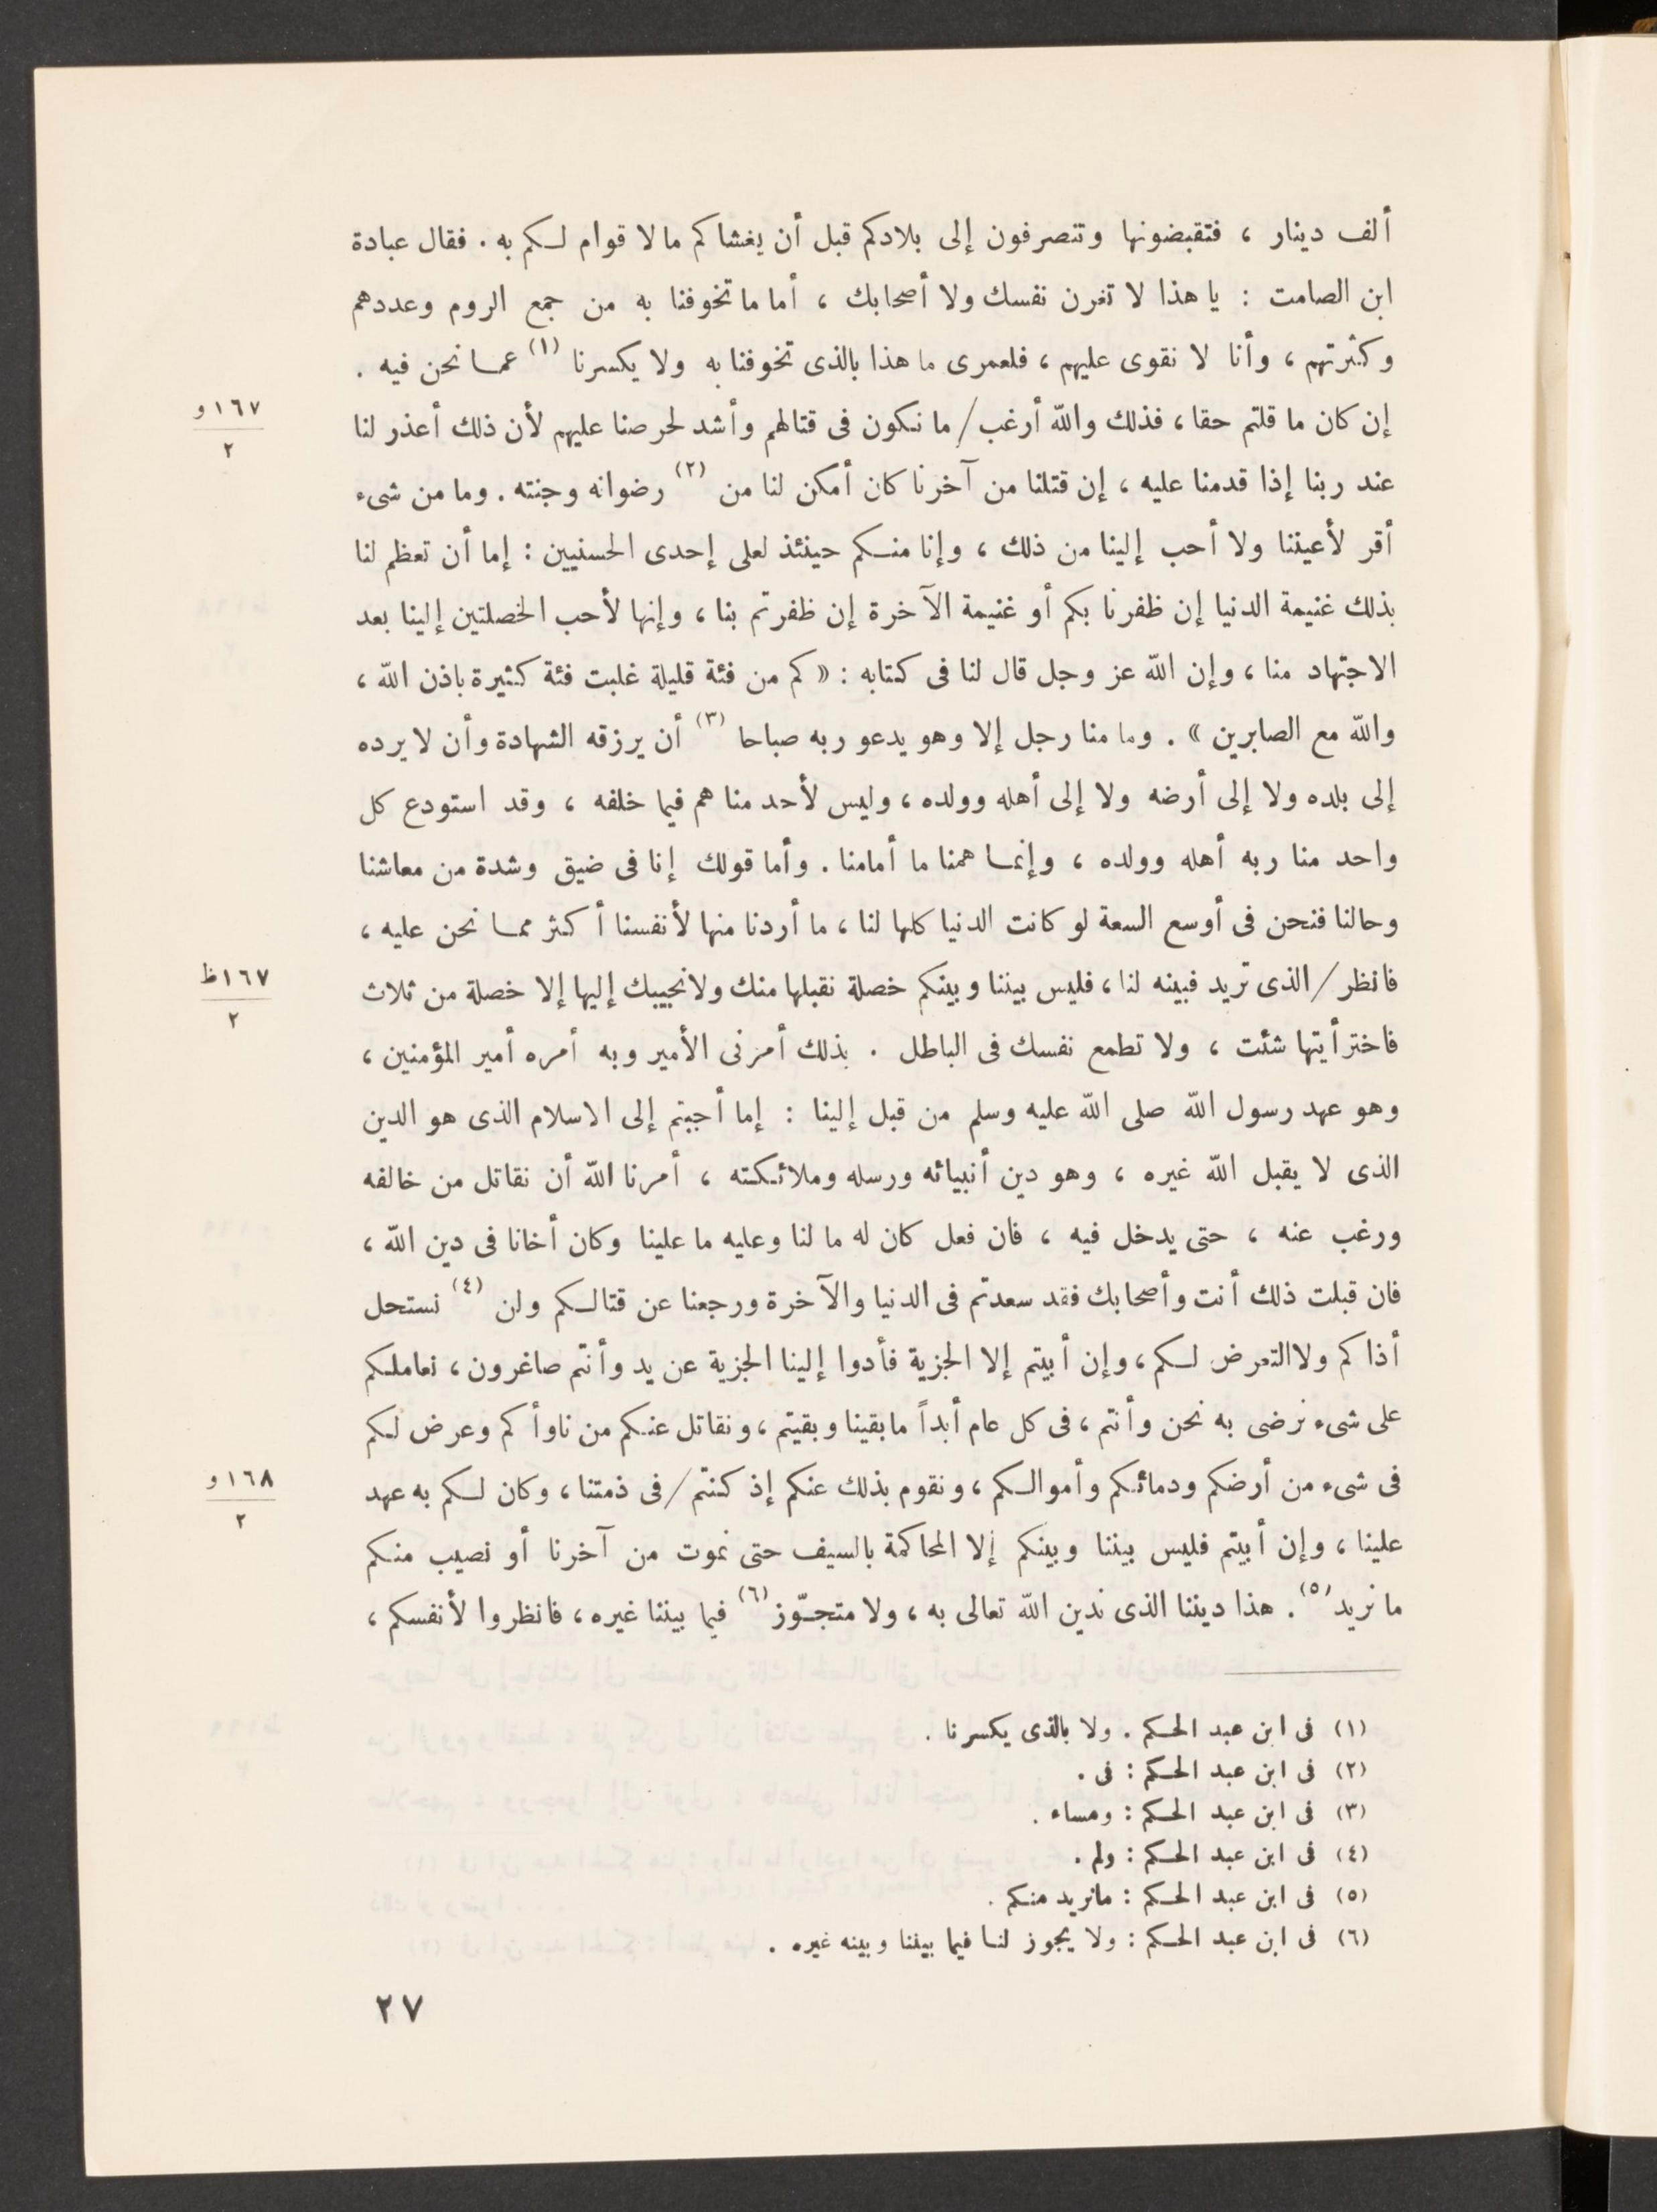 ألف دينار ، فتقبضونها وتنصرفون إلى بلادكم قبل أن يغشاكم مالا قوام لكم به . فقال عبادة
ابن الصامت : يا هذا لا تغرن نفسك ولا أصحابك ، أما ما تخوفنا به من جمع الروم وعددهم
وكثرتهم ، وأنا لا نقوى عليهم ، فلعمرى ما هذا بالذى تخوفنا به ولا يكسرنا (١) عما نحن فيه .
إن كان ما قلتم حقا ، فذلك والله أرغب / ما نكون فى قتالهم وأشد لحرصنا عليهم لأن ذلك أعذر لنا
١٦٧ و
٢
عند ربنا إذا قدمنا عليه ، إن قتلنا من آخرنا كان أمكن لنا من (٢) رضوانه وجنته . وما من شىء
أقر لأعيننا ولا أحب إلينا من ذلك ، وإنا منكم حينئذ لعلى إحدى الحسنيين : إما أن تعظم لنا
بذلك غنيمة الدنيا إن ظفرنا بكم أو غنيمة الآخرة إن ظفرتم بنا ، وإنها لأحب الخصلتين إلينا بعد
الاجتهاد منا ، وإن الله عز وجل قال لنا فى كتابه : « كم من فئة قليلة غلبت فئة كثيرة باذن الله ،
والله مع الصابرين » . وما منا رجل إلا وهو يدعو ربه صباحا (٣) أن يرزقه الشهادة وأن لا يرده
إلى بلده ولا إلى أرضه ولا إلى أهله وولده ، وليس لأحد منا هم فيما خلفه ، وقد استودع كل
واحد منا ربه أهله وولده ، وإنما همنا ما أمامنا . وأما قولك إنا فى ضيق وشدة من معاشنا
وحالنا فنحن فى أوسع السعة لو كانت الدنيا كلها لنا ، ما أردنا منها لأنفسنا أكثر مما نحن عليه ،
فانظر / الذى تريد فبينه لنا ، فليس بيننا وبينكم خصلة نقبلها منك ولا نجيبك إليها إلا خصلة من ثلاث
١٦٧ ظ
٢
فاختر أيتها شئت ، ولا تطمع نفسك فى الباطل . بذلك أمرنى الأمير وبه أمره أمير المؤمنين ،
وهو عهد رسول الله صلى الله عليه وسلم من قبل إلينا : إما أجبتم إلى الاسلام الذى هو الدين
الذى لا يقبل الله غيره ، وهو دين أنبيائه ورسله وملائكته ، أمرنا الله أن نقاتل من خالفه
ورغب عنه ، حتى يدخل فيه ، فان فعل كان له ما لنا وعليه ما علينا وكان أخانا فى دين الله ،
فان قبلت ذلك أنت وأصحابك فقد سعدتم فى الدنيا والآخرة ورجعنا عن قتالكم ولن (٤) نستحل
أذاكم ولا التعرض لكم ، وإن أبيتم إلا الجزية فأدوا إلينا الجزية عن يد وأنتم صاغرون ، نعاملكم
على شىء نرضى به نحن وأنتم ، فى كل عام أبداً ما بقينا وبقيتم ، ونقاتل عنكم من ناوأكم وعرض لكم
فى شىء من أرضكم ودمائكم وأموالكم ، ونقوم بذلك عنكم إذ كنتم / فى ذمتنا ، وكان لكم به عهد
١٦٨ و
٢
علينا ، وإن أبيتم فليس بيننا وبينكم إلا المحاكمة بالسيف حتى نموت من آخرنا أو نصيب منكم
ما نريد (٥) . هذا ديننا الذى ندين الله تعالى به ، ولا متجوّز (٦) فيما بيننا غيره ، فانظروا لأنفسكم ،
(١) فى ابن عبد الحكم . ولا بالذى يكسرنا .
(٢) فى ابن عبد الحكم : فى .
(٣) فى ابن عبد الحكم : ومساء .
(٤) فى ابن عبد الحكم : ولم .
(٥) فى ابن عبد الحكم : مانريد منكم .
(٦) فى ابن عبد الحكم : ولا يجوز لنا فيما بيننا وبينه غيره .
٢٧